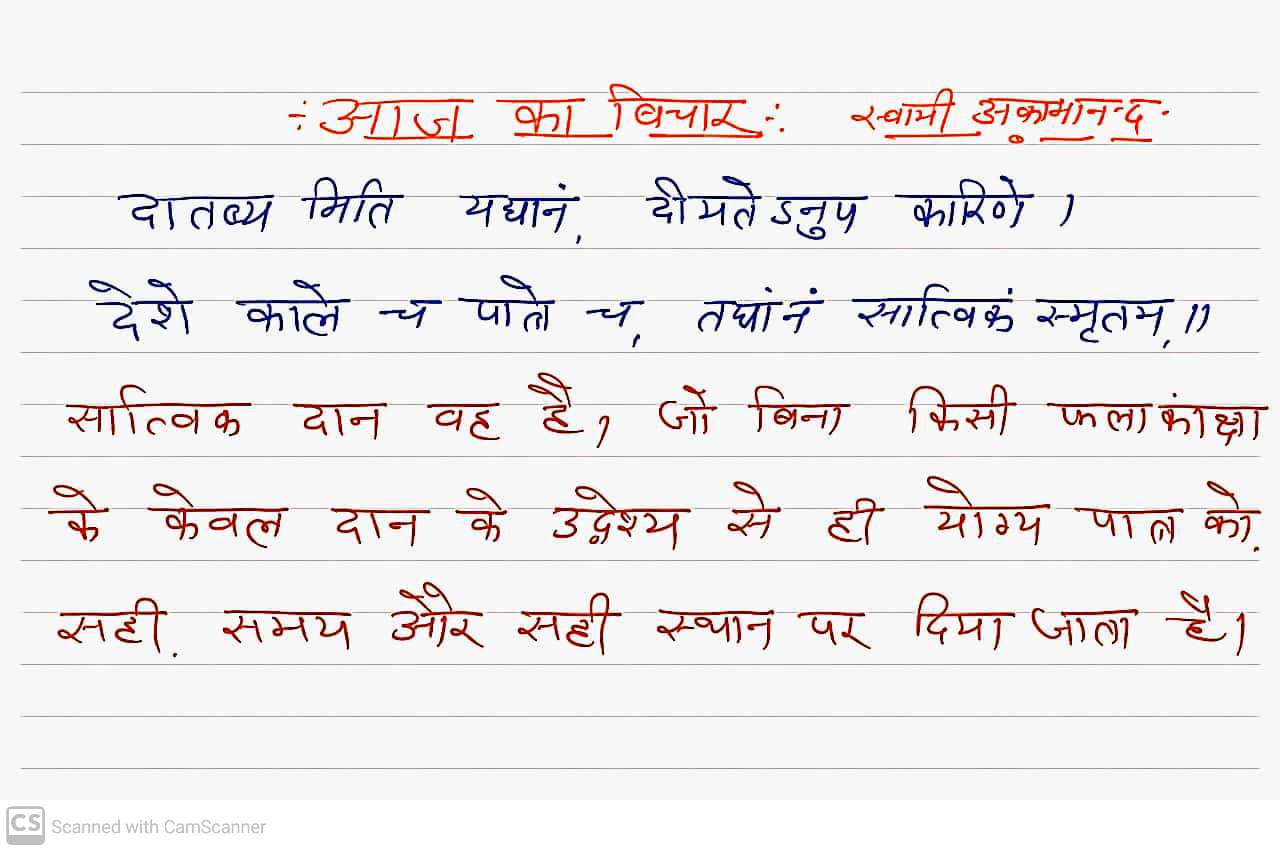 ÷ आज का विचार ÷ स्वामी अकामानन्द
दातव्य मिति यद्यानं, दीयतेऽनुप कारिणे ।
देशे काले च पात्रे च, तद्यांनं सात्विकं स्मृतम् ॥
सात्विक दान वह है, जो बिना किसी फलाकांक्षा
के केवल दान के उद्देश्य से ही योग्य पात्र को,
सही समय और सही स्थान पर दिया जाता है।
CS Scanned with CamScanner